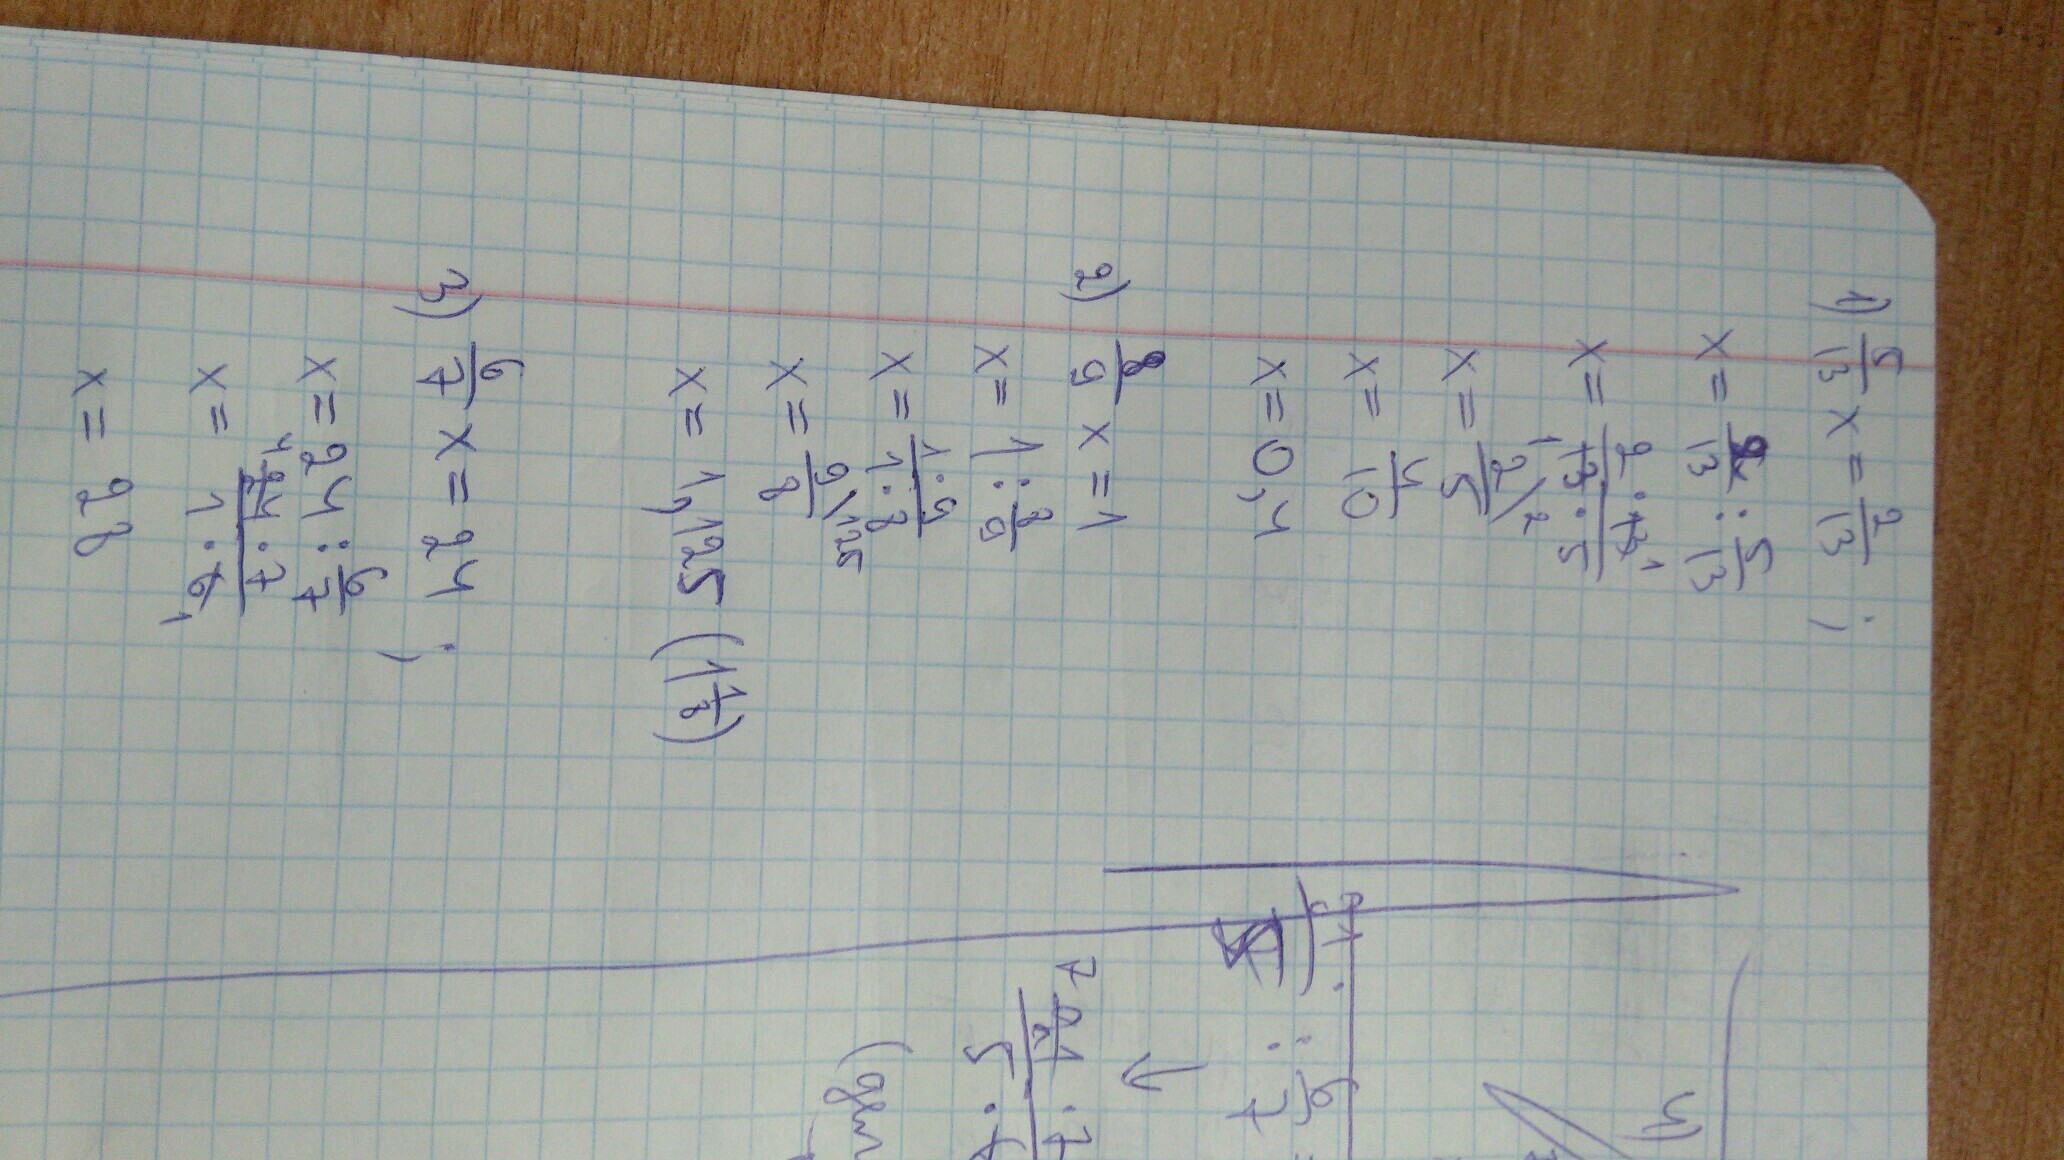 1) 5/13 x = 2/13 ;
x = 2/13 : 5/13
x = 2 · 13 1 / 1 13 · 5
x = 2/5 \ 2
x = 4/10
x = 0,4
2) 8/9 x = 1
x = 1 : 8/9
x = 1 · 9 / 1 · 8
x = 9/8 \ 125
x = 1,125 (1 1/8)
3) 6/7 x = 24 ;
x = 24 : 6/7
x = 4 24 · 7 / 1 · 6 1
x = 28
4)
: 6/7